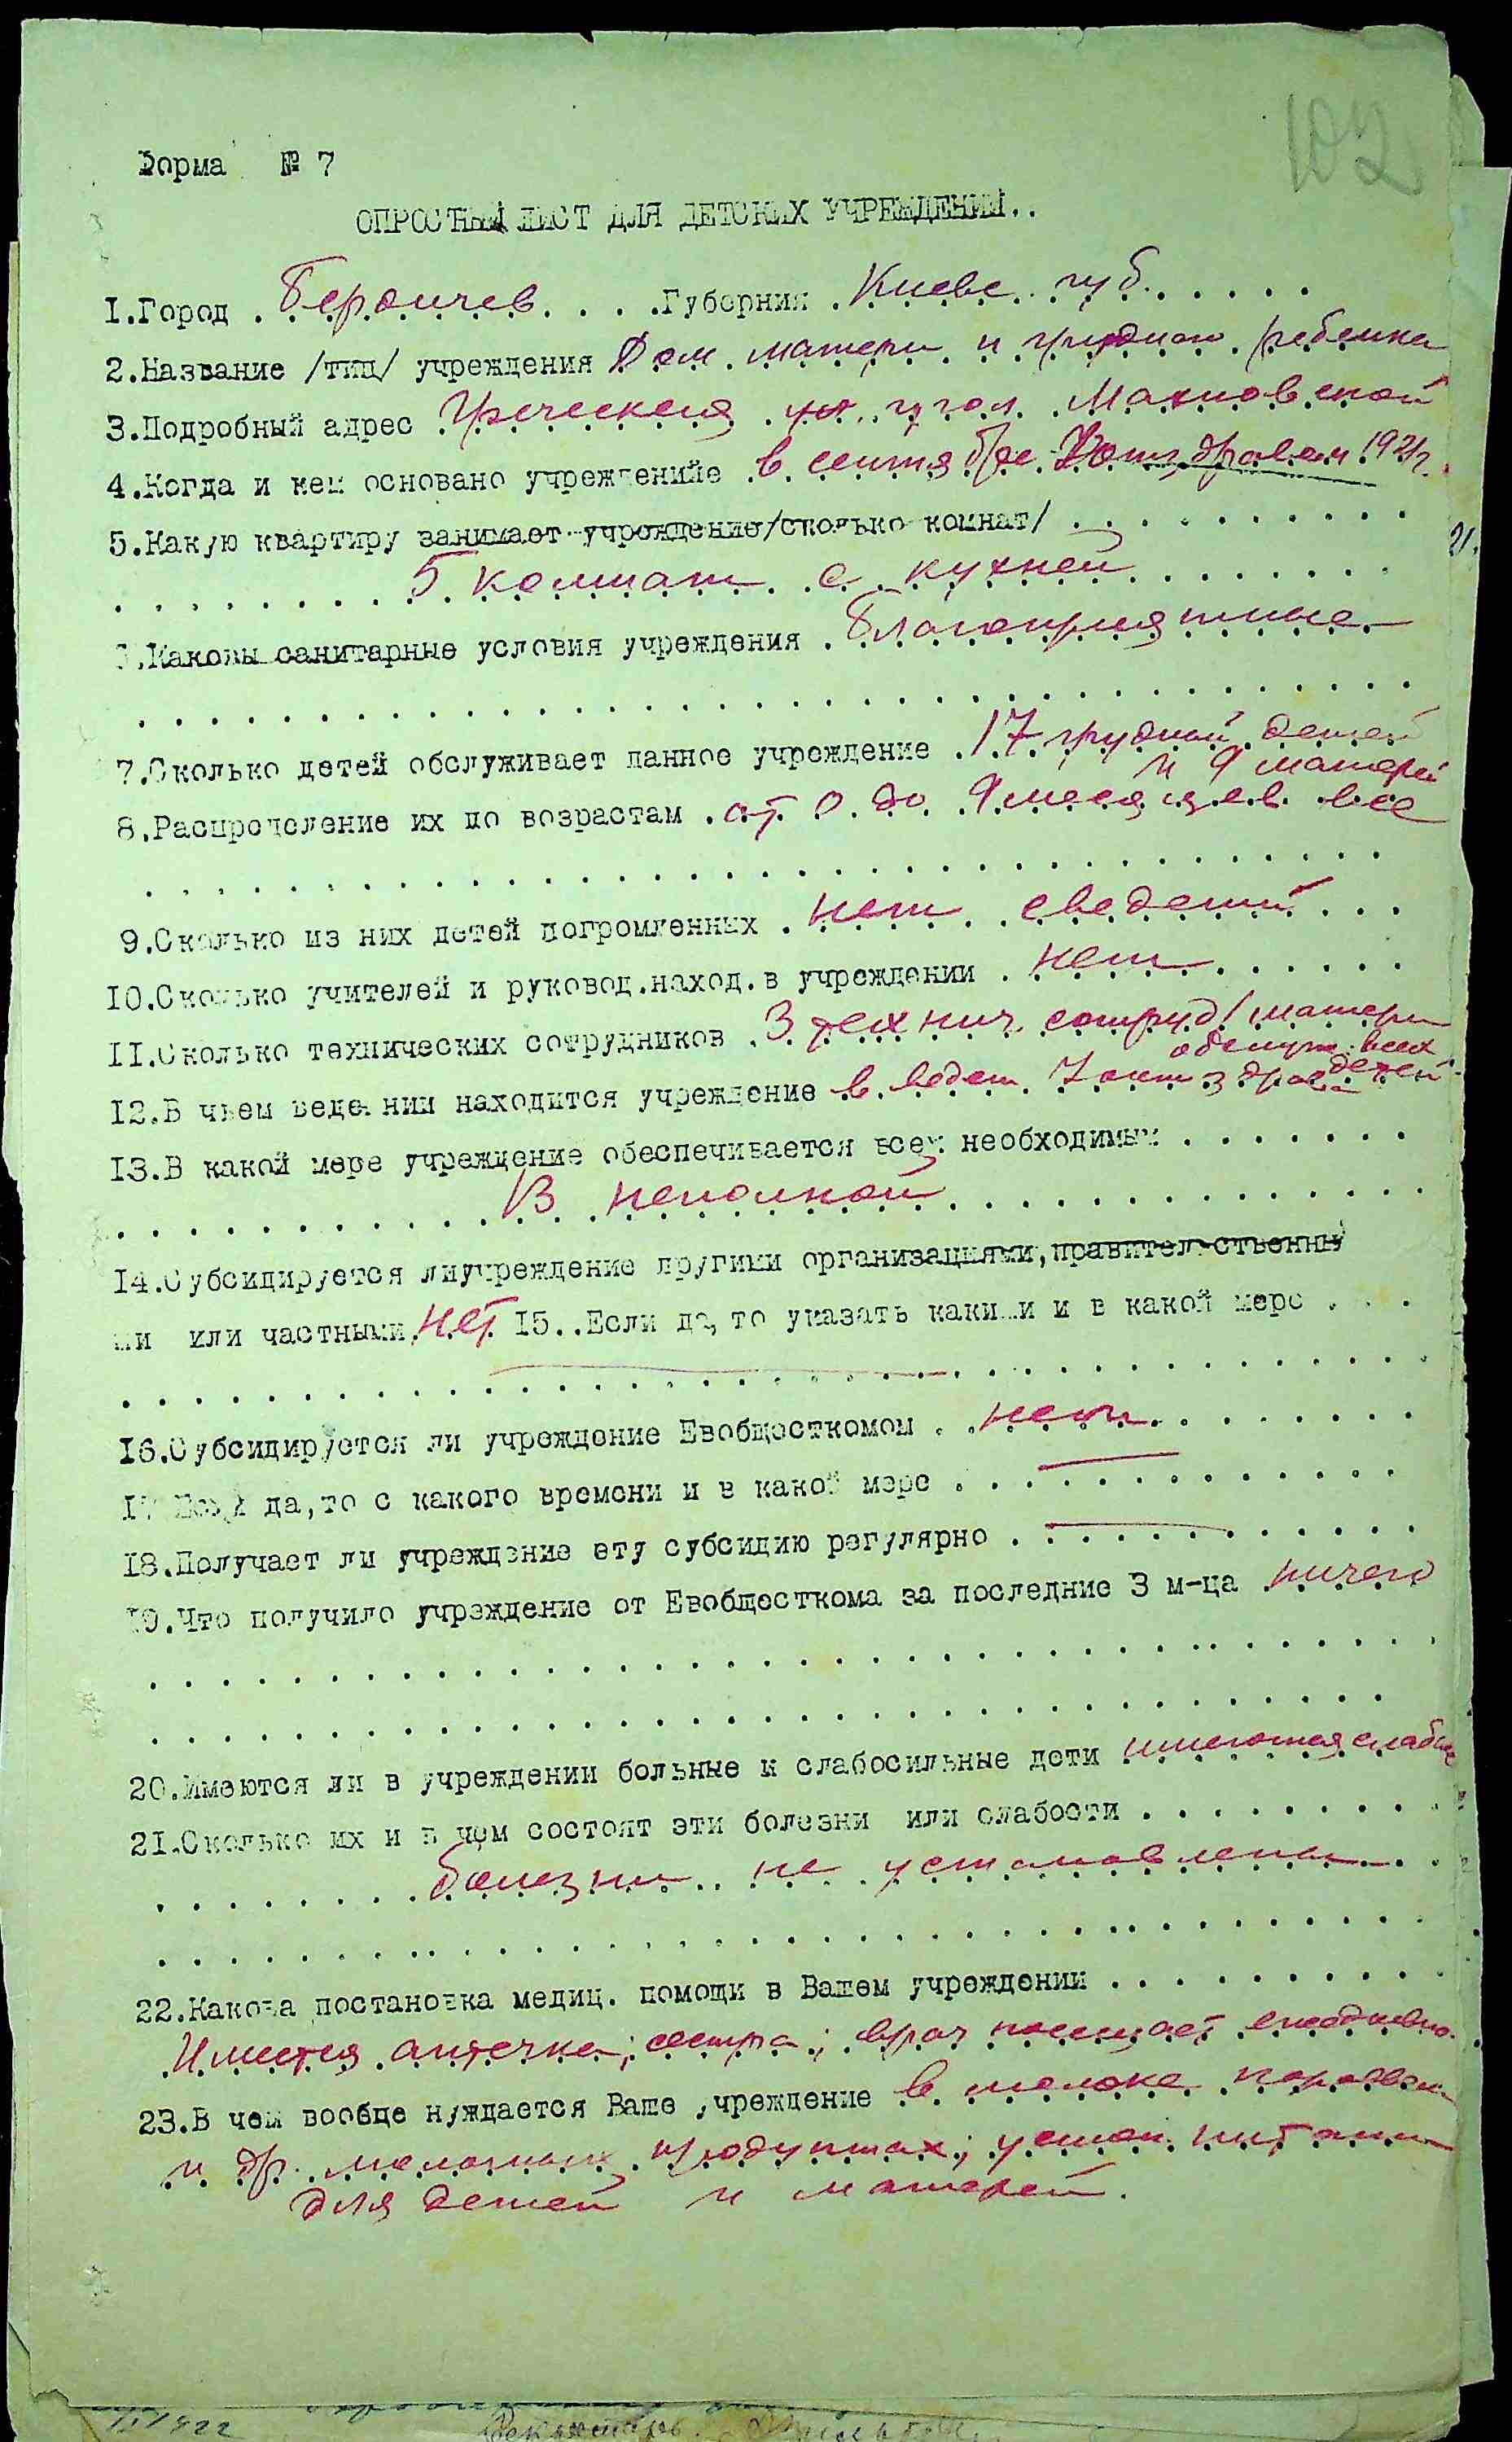 102
Форма № 7
ОПРОСНЫЙ ЛИСТ ДЛЯ ДЕТСКИХ УЧРЕЖДЕНИЙ..
1.Город . Бердичев. . . .Губерния . Киевс. губ. . . . . .
2.Название /тип/ учреждения Дом матери и грудного ребенка
3.Подробный адрес Греческая ул. угол Махновской
4.Когда и кем основано учреждениие в сентябре 1921г.
5.Какую квартиру занимает учреждение/сколько комнат/ . . . . . . . . . .
5 комнат с кухней
.Каковы санитарные условия учреждения . Благоприятные
7.Сколько детей обслуживает данное учреждение . 17 грудной детей
и 9 матерей
8.Распределение их по возрастам . от 0 до 9 месяцев все
9.Сколько из них детей погромленных . нет сведений . . .
10.Сколько учителей и руковод.наход.в учреждении . нет . . . . . .
11.Сколько технических сотрудников . 3 технич. сотруд/матери
обслуж. всех
детей
12.В чьем ведении находится учреждение в ведет.
13.В какой мере учреждение обеспечивается всем необходимым . . . . . . .
В неполной
14.Субсидируется лиучреждение другими организациями,правительственны
ми или частными. нет 15..Если да, то указать какими и в какой мере . . .
16.Субсидируется ли учреждение Евобщесткомом . . нет. . . . . . . .
17 Если да,то с какого времени и в какой мере . . . . . . . . . . . .
18.Получает ли учреждение ету субсидию регулярно . . . . . . . . . . .
19.Что получило учреждение от Евобщесткома за последние 3 м-ца ничего
20.Имеются ли в учреждении больные и слабосильные дети имеются слабые
21.Сколько их и в чем состоят эти болезни или слабости . . . . . . . . .
болезни не установлены
22.Какова постановка медиц. помощи в Вашем учреждении . . . . . . . . . .
Имеется аптечка; сестра; врач посещает ежедневно.
23.В чем вообще нуждается Ваше учреждение в молоке коровьем
и др. молочных продуктах; усил. питании
для детей и матерей.
1922
Секретарь